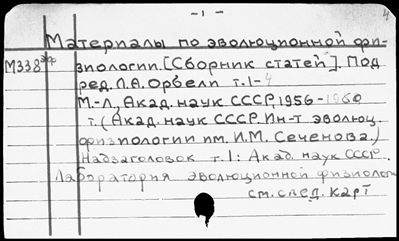 - 1 -
4
Материалы по эволюционной фи-
М338эф зиологии. [Сборник статей]. Под
ред. Л.А. Орбели т. 1-4
М.-Л., Акад. наук СССР, 1956-1960
т. (Акад. наук СССР. Ин-т эволюц.
физиологии им. И.М. Сеченова.)
Надзаголовок т. 1: Акад. наук СССР.
Лаборатория эволюционной физиолог
см. след. карт